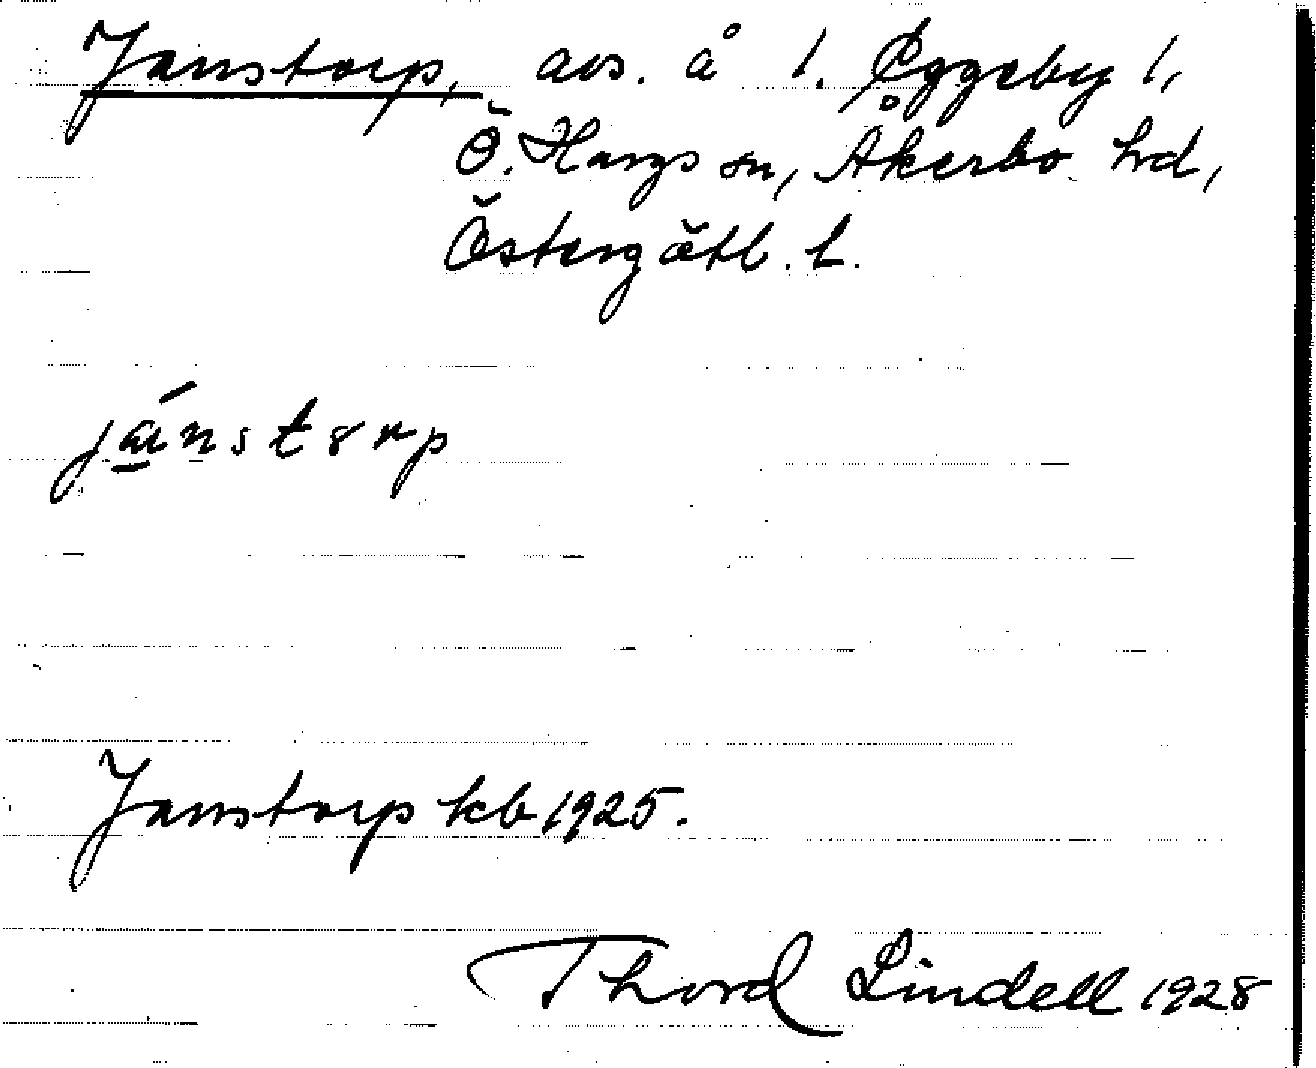 Janstorp, avs. å 1. Eggeby 1,
Ö. Hargs sn, Åkerbo hd,
Östergötl. l.
Janstorp kb 1925.
Thord Lindell 1928